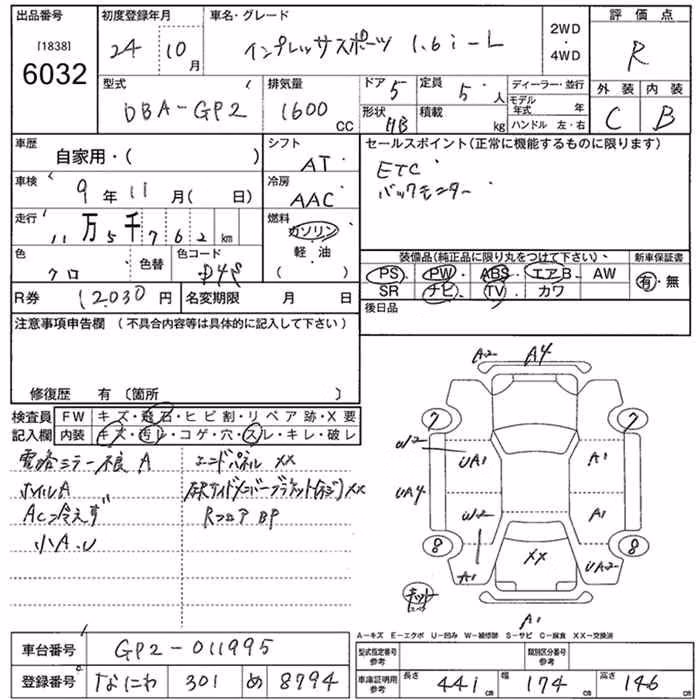 出品番号
[1838]
6032
初度登録年月
24 10 月
車名・グレード
インプレッサスポーツ 1.6i-L
2WD
・
4WD
評価点
R
外装 内装
C B
型式
DBA-GP2
排気量
1600 CC
ドア 5
形状 HB
定員 5 人
積載 kg
ディーラー・並行
モデル年式 年
ハンドル 左・右
車歴
自家用・( )
車検
9 年 11 月( 日)
走行
11 万 5 千 7 6 2 km
色
クロ
色替
色コード
D4S
シフト
AT
冷房
AAC
燃料
ガソリン
軽・油
( )
R券 12030 円
名変期限 月 日
セールスポイント(正常に機能するものに限ります)
ETC
バックモニター
装備品(純正品に限り丸をつけて下さい)
PS PW ABS エアB AW
SR ナビ TV カワ
新車保証書
有・無
後日品
注意事項申告欄 (不具合内容等は具体的に記入して下さい)
修復歴 有 (箇所 )
検査員記入欄
FW キズ・飛石・ヒビ割・リペア跡・X要
内装 キズ・汚レ・コゲ・穴・スレ・キレ・破レ
電格ミラー不良 A
ホイルA
AC冷えず
小A.U
エンドパネル XX
XX
Rフロア BP
A2 A4
7 7
W2 UA1 A1
UA4
W2 A1
8 8
XX
A1 UA2
A1
A-キズ E-エクボ U-凹み W-補修跡 S-サビ C-腐食 XX-交換済
車台番号 GP2-011995
登録番号 なにわ 301 め 8794
型式指定番号 参考
類別区分番号 参考
車庫証明用 参考
長さ 441 cm
幅 174 cm
高さ 146 cm